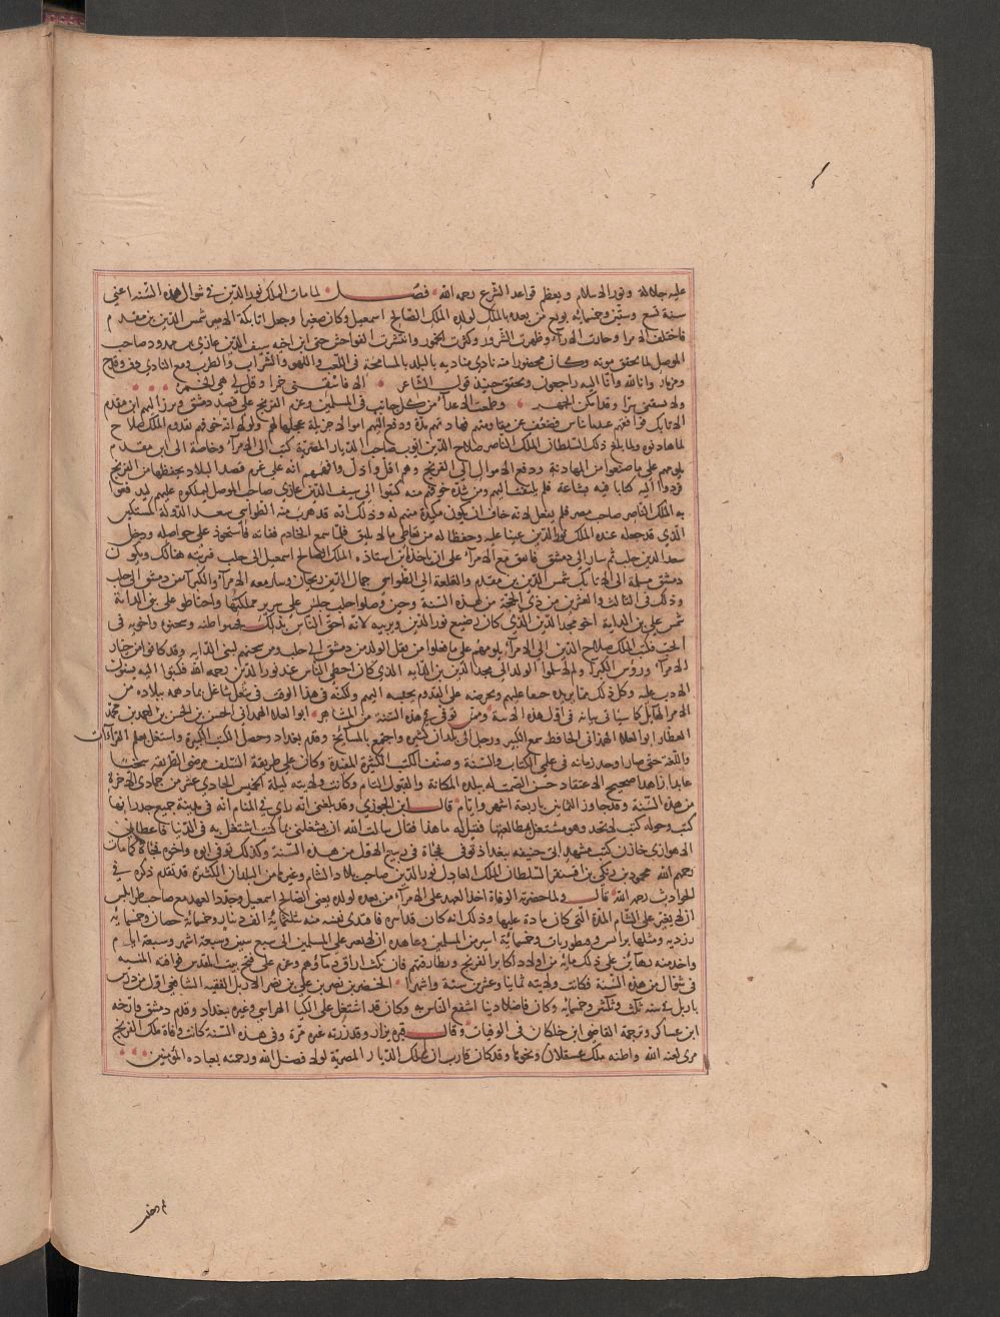 عليه جلالة ونور الاسلام ويعظم قواعد الشرع رحمه الله فصل لما مات الملك نور الدين في شوال هذه السنة اعني
سنة تسع وستين وخمسمائة بويع من بعده بالملك لولده الملك الصالح اسمعيل وكان صغيرا وجعل اتابكه الامير شمس الدين بن مقدم
فاختلف الامرا وحارت الاراء وظهرت الشرور وكثرت الخمور وانتشرت الفواحش حتى ان ابن اخيه سيف الدين غازي بن مودود صاحب
الموصل لما تحقق موته وكان محصورا منه نادى مناديه بالبلد بالمسامحة في اللعب واللهو والشراب والطرب ومع المنادي دف وقدح
ومزمار وانا لله وانا اليه راجعون وتحقق حينئذ قول الشاعر الا فاسقني خمرا وقل لي هي الخمر
ولا تسقني سرا وقد امكن الجهر وطمعت الاعداء من كل جانب في المسلمين وعزم الفرنج على قصد دمشق وبرز اليهم ابن مقدم
الاتابك فواقعهم عند بانياس فضعف عن مقاومتهم فهادنهم مدة ودفع اليهم اموالا جزيلة عجلها لهم ولولا انه خوفهم بقدوم الملك صلاح
لما هادنوه ولما بلغ ذلك السلطان الملك الناصر صلاح الدين ايوب صاحب الديار المصرية كتب الى الامراء وخاصة الى ابن مقدم
يلومهم على ما صنعوا من المهادنة ودفع الاموال الى الفرنج وهم اقل واذل واخبرهم انه على عزم قصد البلاد ليحفظها من الفرنج
فردوا اليه كتابا فيه بشاعة فلم يلتفت اليهم ومن شدة خوفهم منه كتبوا الى سيف الدين غازي صاحب الموصل ليملكوه عليهم ليدفعوا
به الملك الناصر صاحب مصر فلم يفعل لانه خاف ان يكون مكيدة منهم له وذلك انه قد هرب منه الطواشي سعد الدولة المستكين
الذي قد جعله عنده الملك نور الدين عينا عليه وحفظا له من تعاطي ما لا يليق فلما سمع الخادم فاستحوذ على حواصله ودخل
سعد الدين حلب ثم سار الى دمشق فاتفق مع الامراء على ان ياخذ ابن استاذه الملك الصالح اسمعيل الى حلب فيربيه هنالك ويكون
دمشق مسلمة الى الاتابك شمس الدين بن مقدم والقلعة الى الطواشي جمال الدين ريحان وسار معه الامراء والكبراء من دمشق الى حلب
وذلك في الثالث والعشرين من ذي الحجة من هذه السنة وحين وصلوا حلب جلس على سرير مملكتها واحتاطوا على بني الداية
شمس علي بن الداية اخو مجد الدين الذي كان رضيع نور الدين وتربيه لانه احق الناس بذلك واخويه في
الجب فكتب الملك صلاح الدين الى الامراء يلومهم على ما فعلوا من نقل الولد من دمشق الى حلب ومن سجنهم لبني الداية وقد كانوا من خيار
الامراء ورؤس الكبراء ولم لا سلموا الولد الى مجد الدين بن الداية الذي كان احظى الناس عند نور الدين رحمه الله فكتبوا اليه يسيئون
الادب عليه وكل ذلك مما يزيده حنقا عليهم ويحرضه على القدوم بجيشه اليهم ولكنه في هذا الوقت في شغل شاغل بما دهمه ببلاده من
الامر الهائل كما سياتي بيانه في اول هذه السنة وممن توفي في هذه السنة من المشاهير ابو العلا الهمداني الحسن بن الحسن بن احمد بن محمد
العطار ابو العلا الهمذاني الحافظ سمع الكثير ورحل الى بلدان كثيرة واجتمع بالمشايخ وقدم بغداد وحصل الكتب الكثيرة واشتغل بعلم القراءات
واللغة حتى صار اوحد زمانه في علمي الكتاب والسنة وصنف الكتب الكثيرة المفيدة وكان على طريقة السلف مرضي الطريقة سخيا
عابدا زاهدا صحيح الاعتقاد حسن السمت له ببلده المكانة والقبول التام وكانت ولادته ليلة الخميس الحادي عشر من جمادى الاخرة
من هذه السنة وقد جاوز الثمانين باربعة اشهر وايام قال ابن الجوزي وقد بلغني انه راي في المنام انه في مدينة جميع جدرانها
كتب وحوله كتب لا تحد وهو مشتغل بمطالعتها فقيل له ما هذا فقال سالت الله ان يشغلني بما كنت اشتغل به في الدنيا فاعطاني
الاهوازي خازن كتب مشهد ابي حنيفه ببغداد توفي فجاة في ربيع الاول من هذه السنة وكذلك توفي ابوه واخوه فجاة كما مات
رحمهم الله محمود بن زنكي بن اقسنقر السلطان الملك العادل نور الدين صاحب بلاد الشام وغيرها من البلدان الكثيرة قد تقدم ذكره في
الحوادث رحمه الله قال ولما حضرته الوفاة اخذ العهد على الامراء من بعده لولده يعني الصالح اسمعيل وجدد العهد مع صاحب طرابلس
ان لا يغير على الشام المدة التي كان ماده عليها وذلك انه كان قد اسره فافتدى نفسه منه بثلثمائة الف دينار وخمسمائة حصان وخمسمائة
زردية ومثلها براس وقنطوريات وخمسمائة اسير من المسلمين وعاهده ان لا يغير على المسلمين الى سبع سنين وسبعة اشهر وسبعة ايام
واخذ منه رهائن على ذلك مائة من اولاد اكابر الفرنج وبطارقتهم فان نكث اراق دماؤهم وعزم على فتح بيت المقدس فوافته المنية
في شوال من هذه السنة فكانت ولايته ثمانيا وعشرين سنة واشهرا الخضر بن نصر بن علي بن نصر الاربلي الفقيه الشافعي اول من درس
باربل في سنة ثلث وثلثين وخمسمائة وكان فاضلا دينا انتفع الناس به وكان قد اشتغل على الكيا الهراسي وغيره ببغداد وقدم دمشق فارخه
ابن عساكر وترجمه القاضي ابن خلكان في الوفيات وقال قبره يزار وقد زرته غير مرة وفي هذه السنة كانت وفاة ملك الفرنج
مري لعنه الله واظنه ملك عسقلان ونحوها وقد كان قارب ان يملك الديار المصرية لولا فضل الله ورحمته بعباده المؤمنين